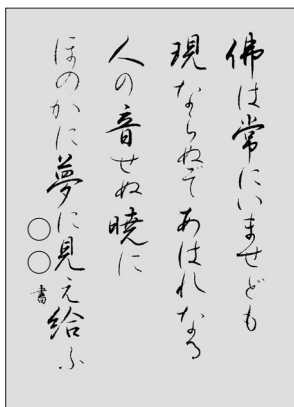 佛は常にいませども
現ならぬぞあはれなる
人の音せぬ暁に
ほのかに夢に見え給ふ
○○書